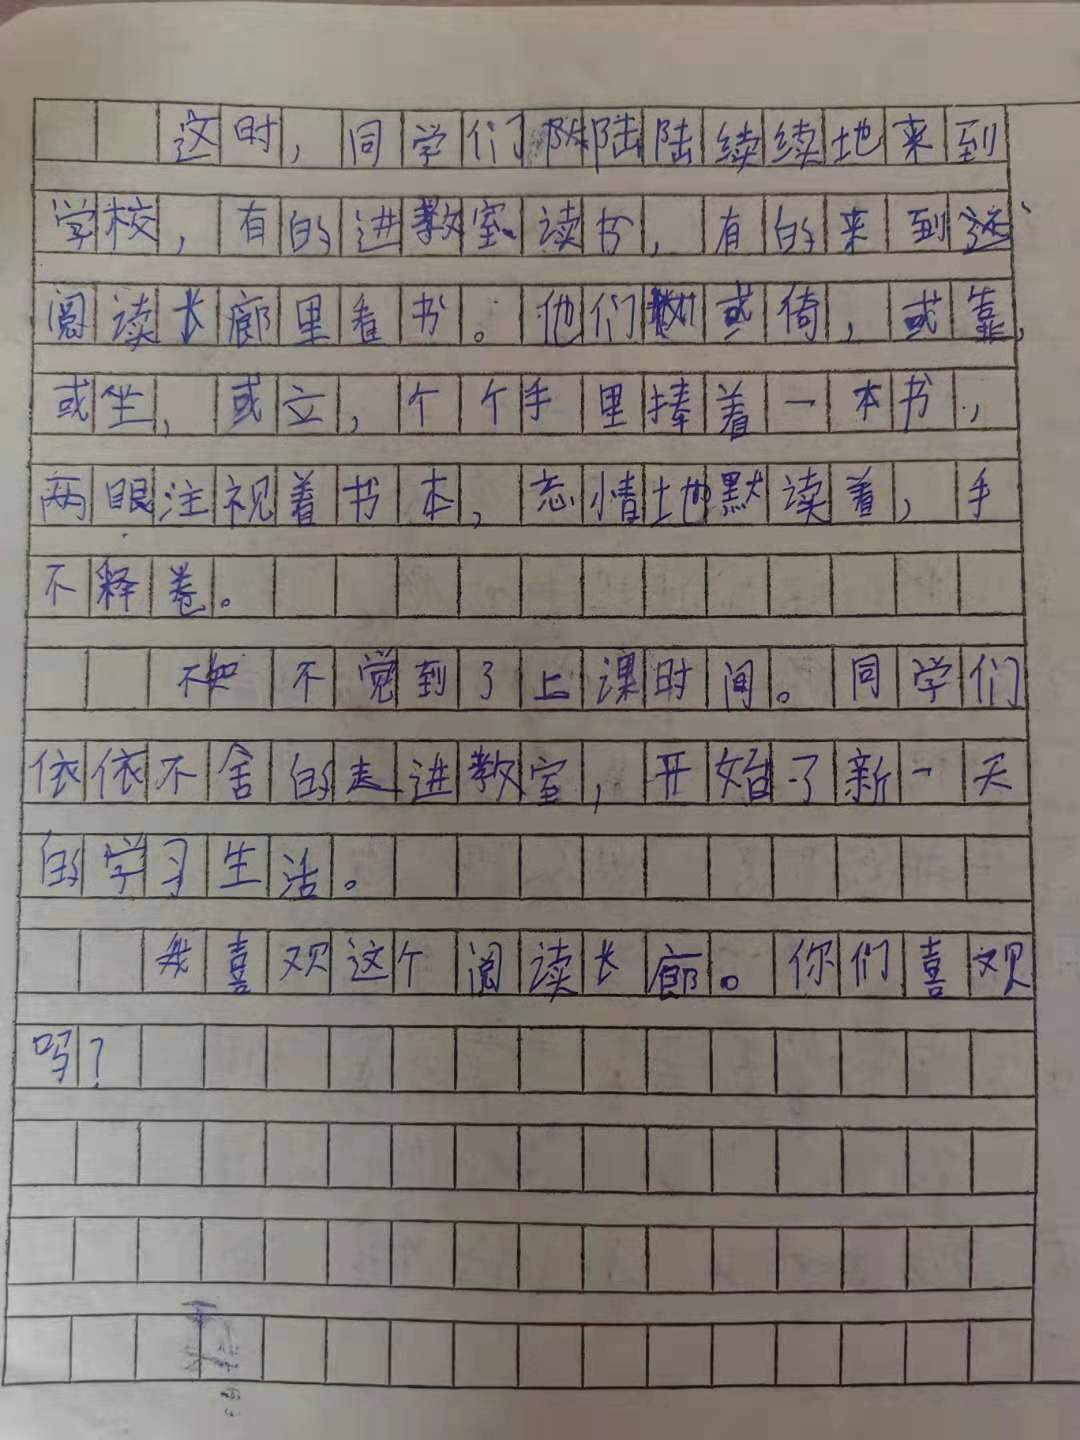 这时，同学们陆陆续续地来到
学校，有的进教室读书，有的来到这
阅读长廊里看书。他们或倚，或靠，
或坐，或立，个个手里捧着一本书，
两眼注视着书本，忘情地默读着，手
不释卷。
不知不觉到了上课时间。同学们
依依不舍的走进教室，开始了新一天
的学习生活。
我喜欢这个阅读长廊。你们喜欢
吗？